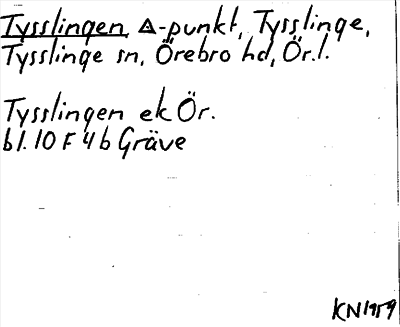 Tysslingen, △-punkt, Tysslinge,
Tysslinge sn, Örebro hd, Ör.l.
Tysslingen ek Ör.
bl. 10 F 4 b Gräve
KN 1959